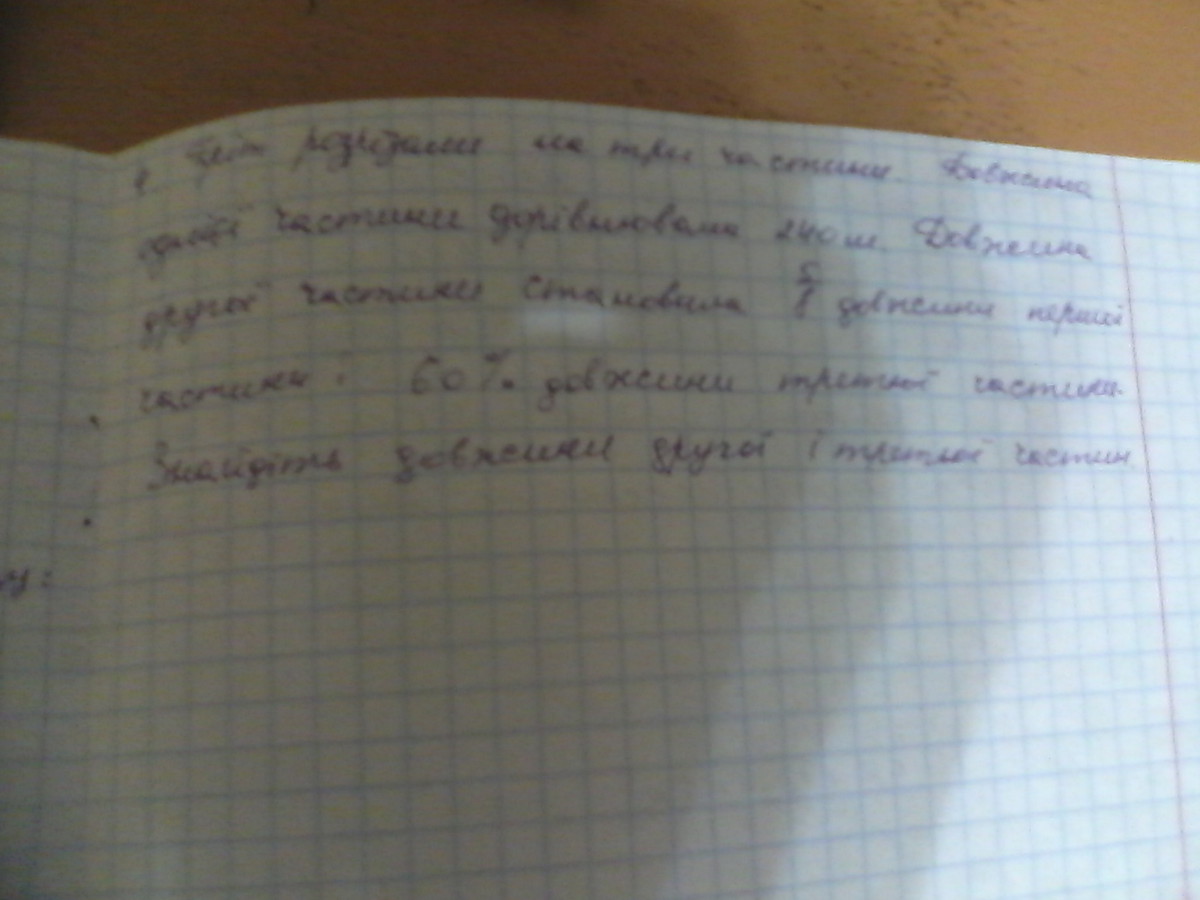 розрізали на три частини. Довжина
однієї частини дорівнювала 240 м. Довжина
другої частини становила 5/8 довжини першої
частини і 60% довжини третьої частини.
Знайдіть довжини другої і третьої частин